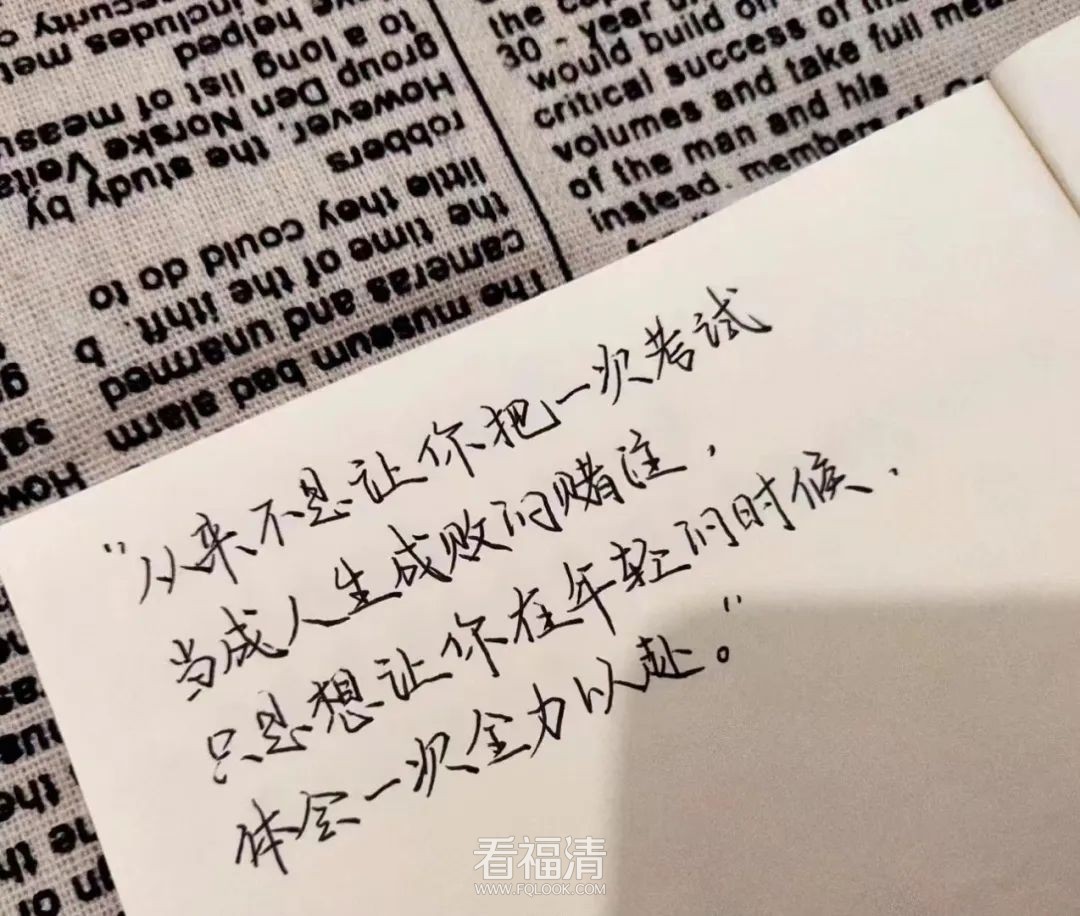 “从来不是让你把一次考试
当成人生成败的赌注，
只是想让你在年轻的时候，
体会一次全力以赴。”
the cap
30 - year
would build on
critical success of the
volumes and take full mea
of the man and his
instead. members of
The museum bad alarm
cameras and unarmed
the time of the ltht. b
little they could do to
robbers
However, the study by
group Den Norske Verita
to a long list of measu
helped
includes met
security
看福清
WWW.FQLOOK.COM